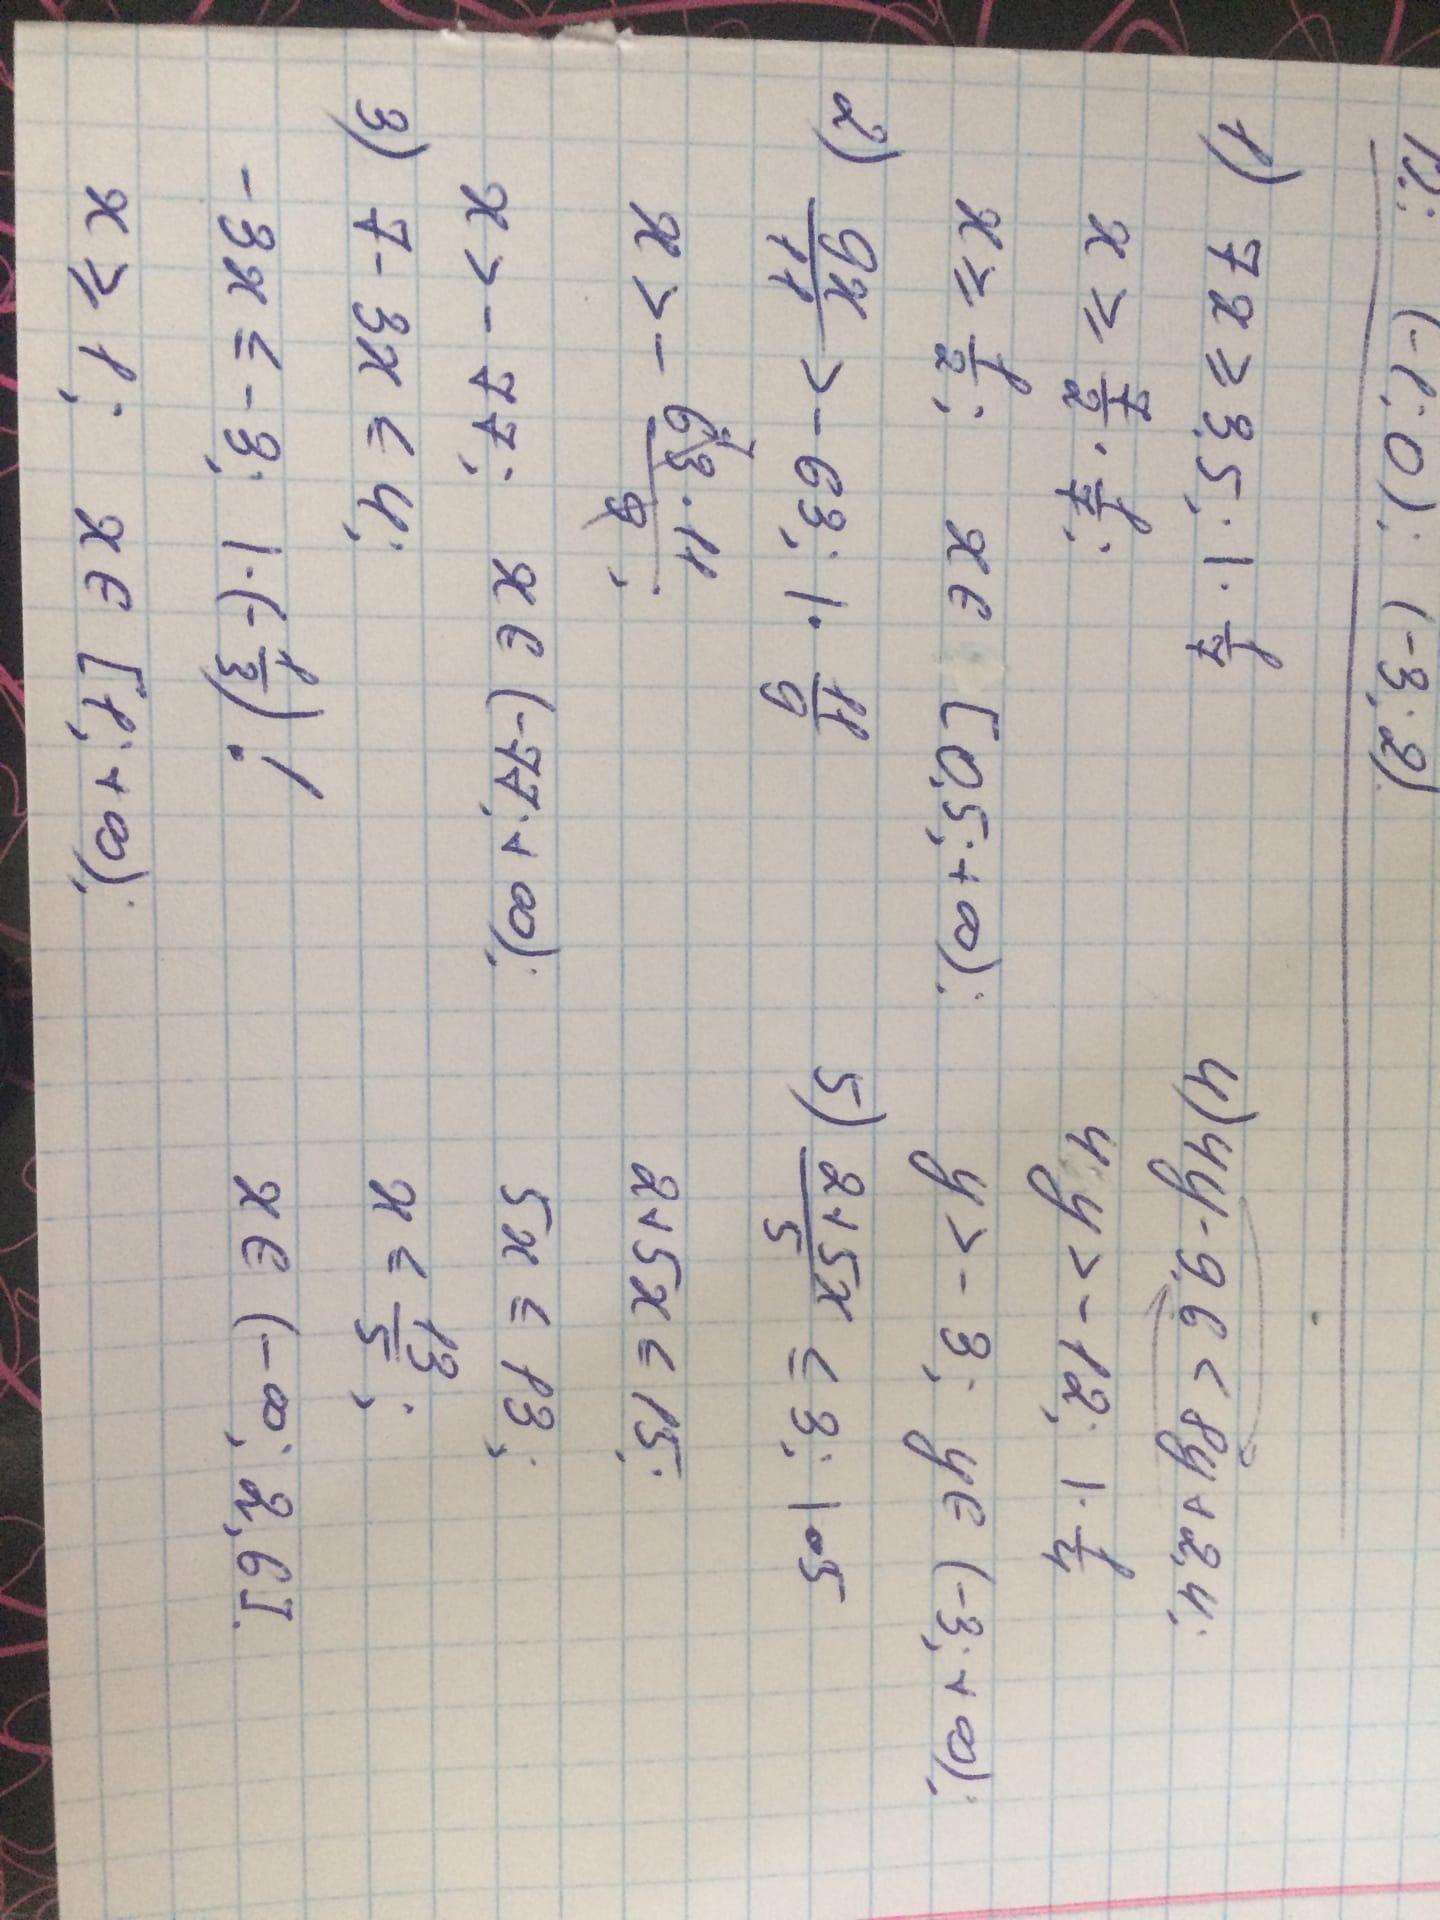 (-1; 0); (-3; 2)
1) 7x ≥ 3,5; | · 1/7
x ≥ 7/2 · 1/7;
x ≥ 1/2; x ∈ [0,5; +∞);
2) 9x/11 > -63; | · 11/9
x > - 63·11/9;
x > -77; x ∈ (-77; +∞);
3) 7 - 3x ≤ 4;
-3x ≤ -3; | · (-1/3) !
x ≥ 1; x ∈ [1; +∞);
4) 4y - 9,6 < 8y + 2,4;
4y > -12; | · 1/4
y > -3; y ∈ (-3; +∞);
5) 2+5x/5 ≤ 3; | · 5
2+5x ≤ 15;
5x ≤ 13;
x ≤ 13/5;
x ∈ (-∞; 2,6].